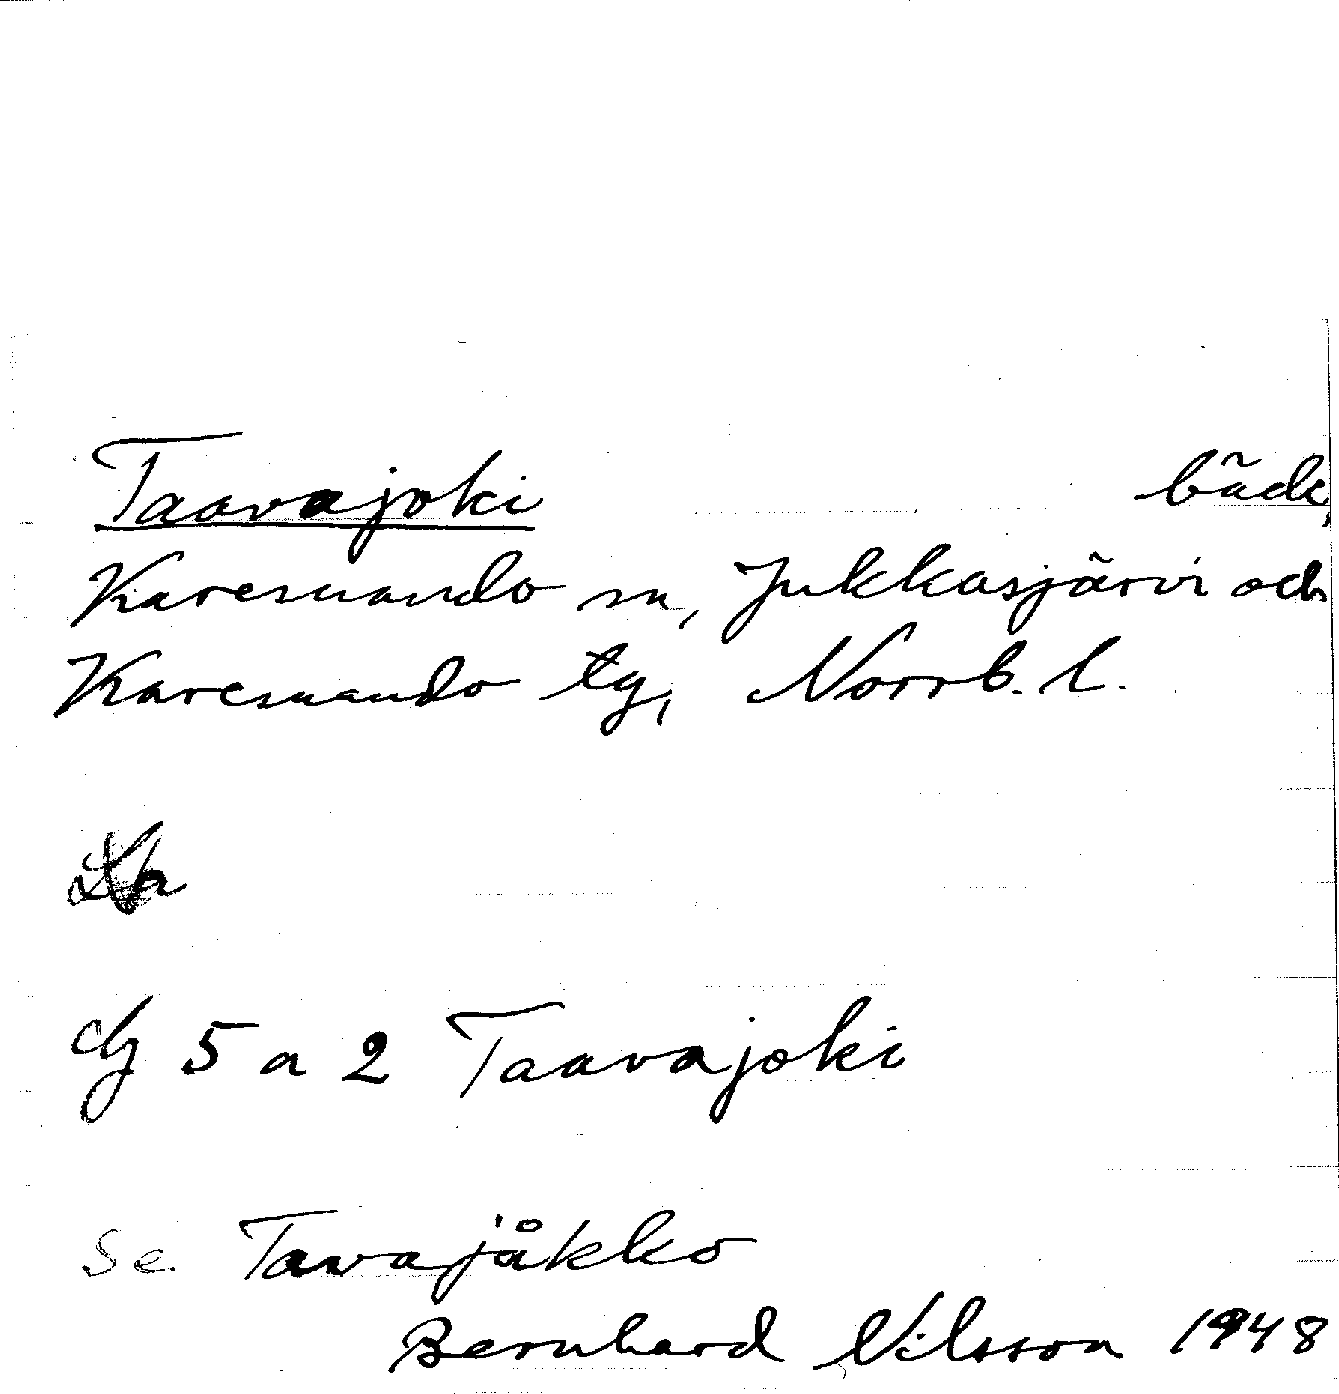 Taavajoki bäck,
Karesuando sn, Jukkasjärvi och
Karesuando tg, Norrb. l.
dg 5 a 2 Taavajoki
Se. Tavajåkko
Bernhard Nilsson 1948